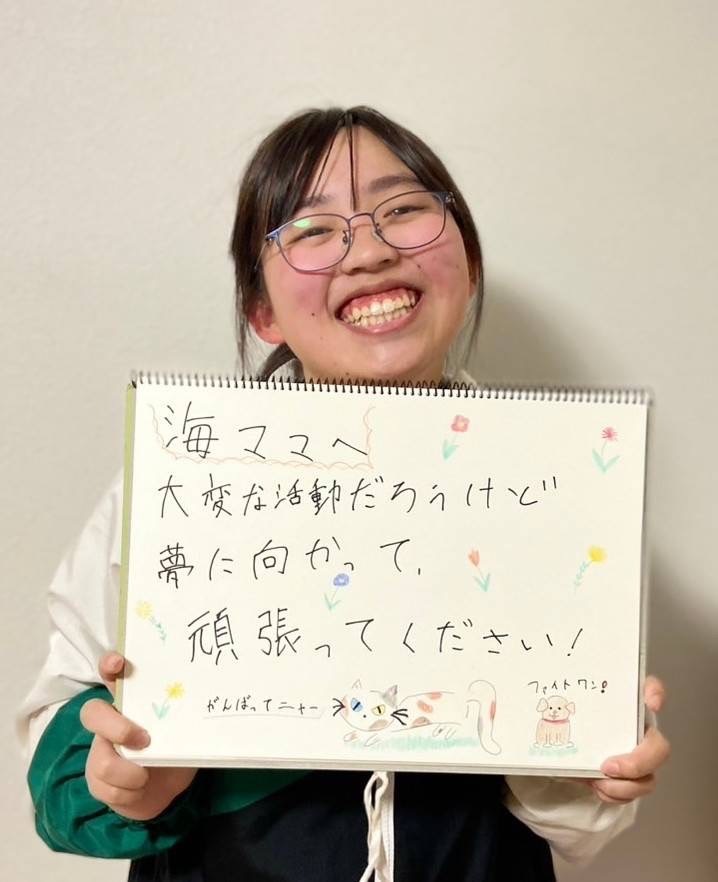 海ママへ
大変な活動だろうけど
夢に向かって、
頑張ってください!
がんばってニャー
ファイトワン!